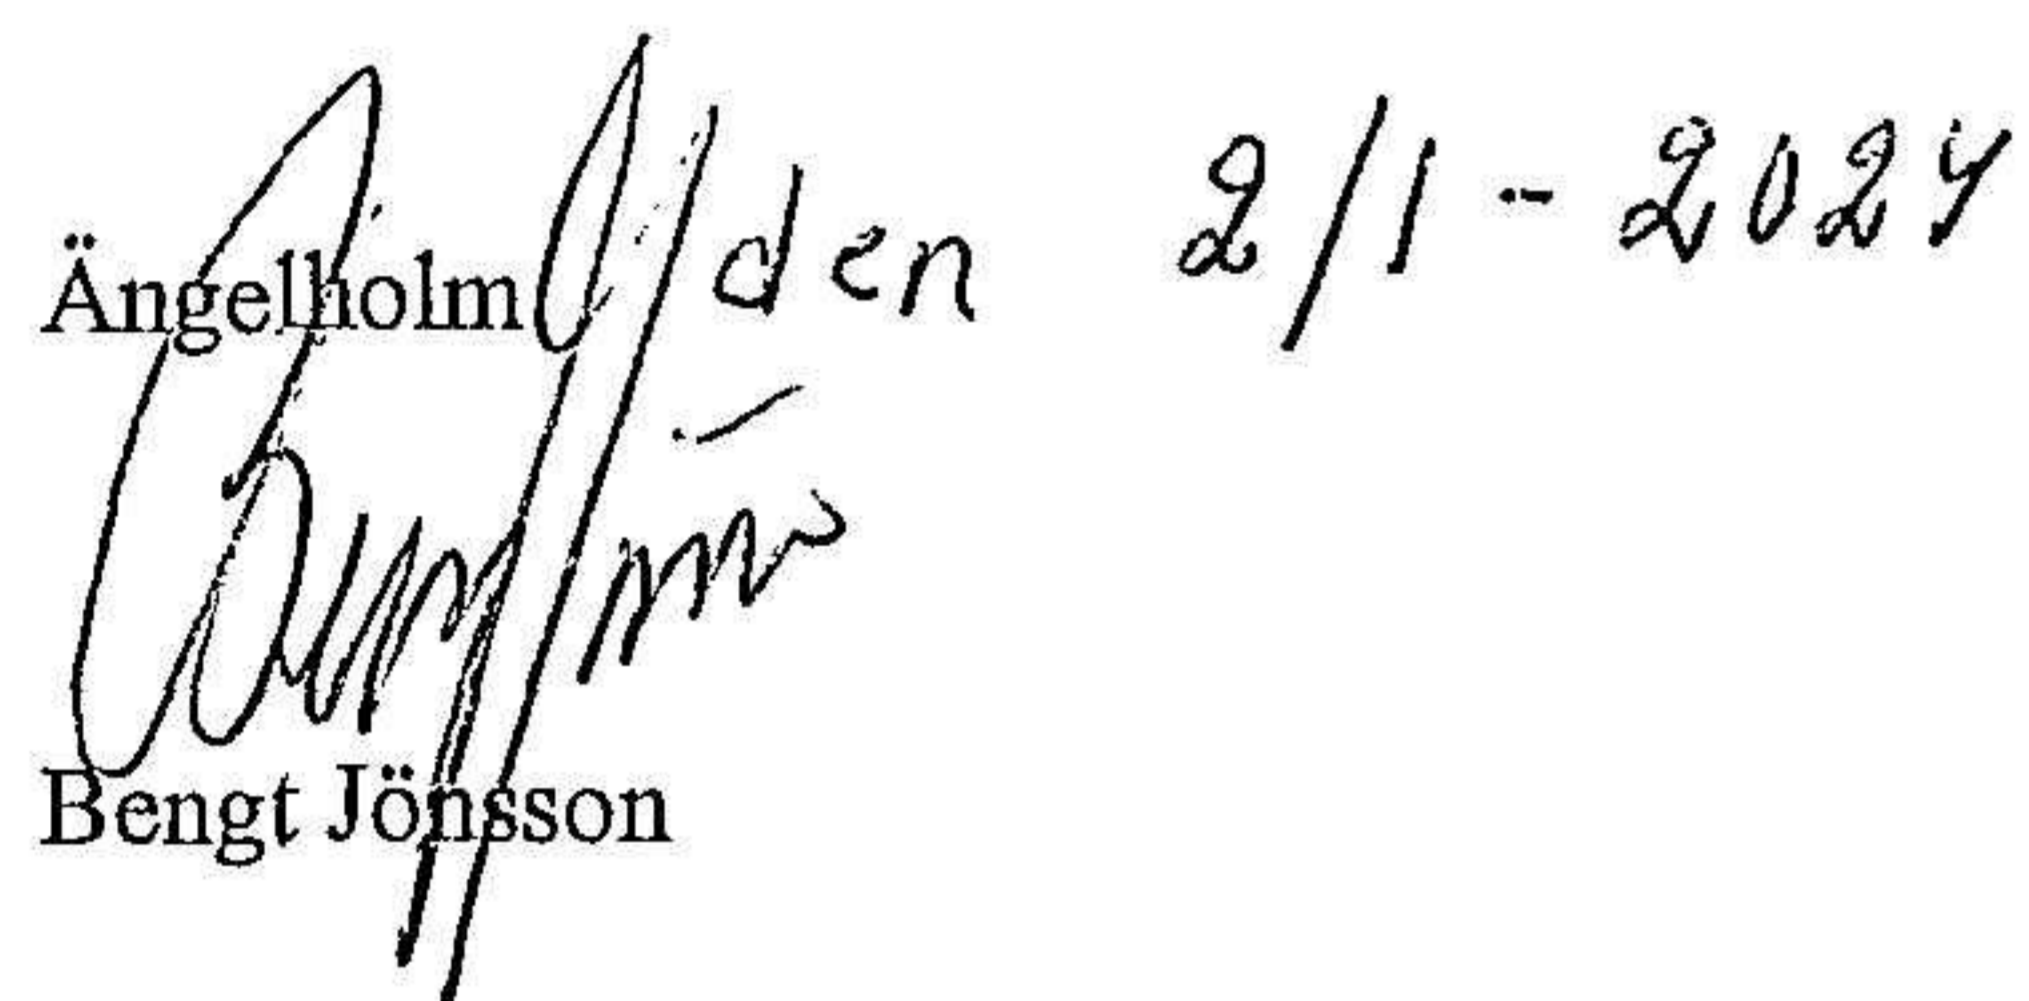 Ängelholm den 2/1 - 2024
Bengt Jönsson